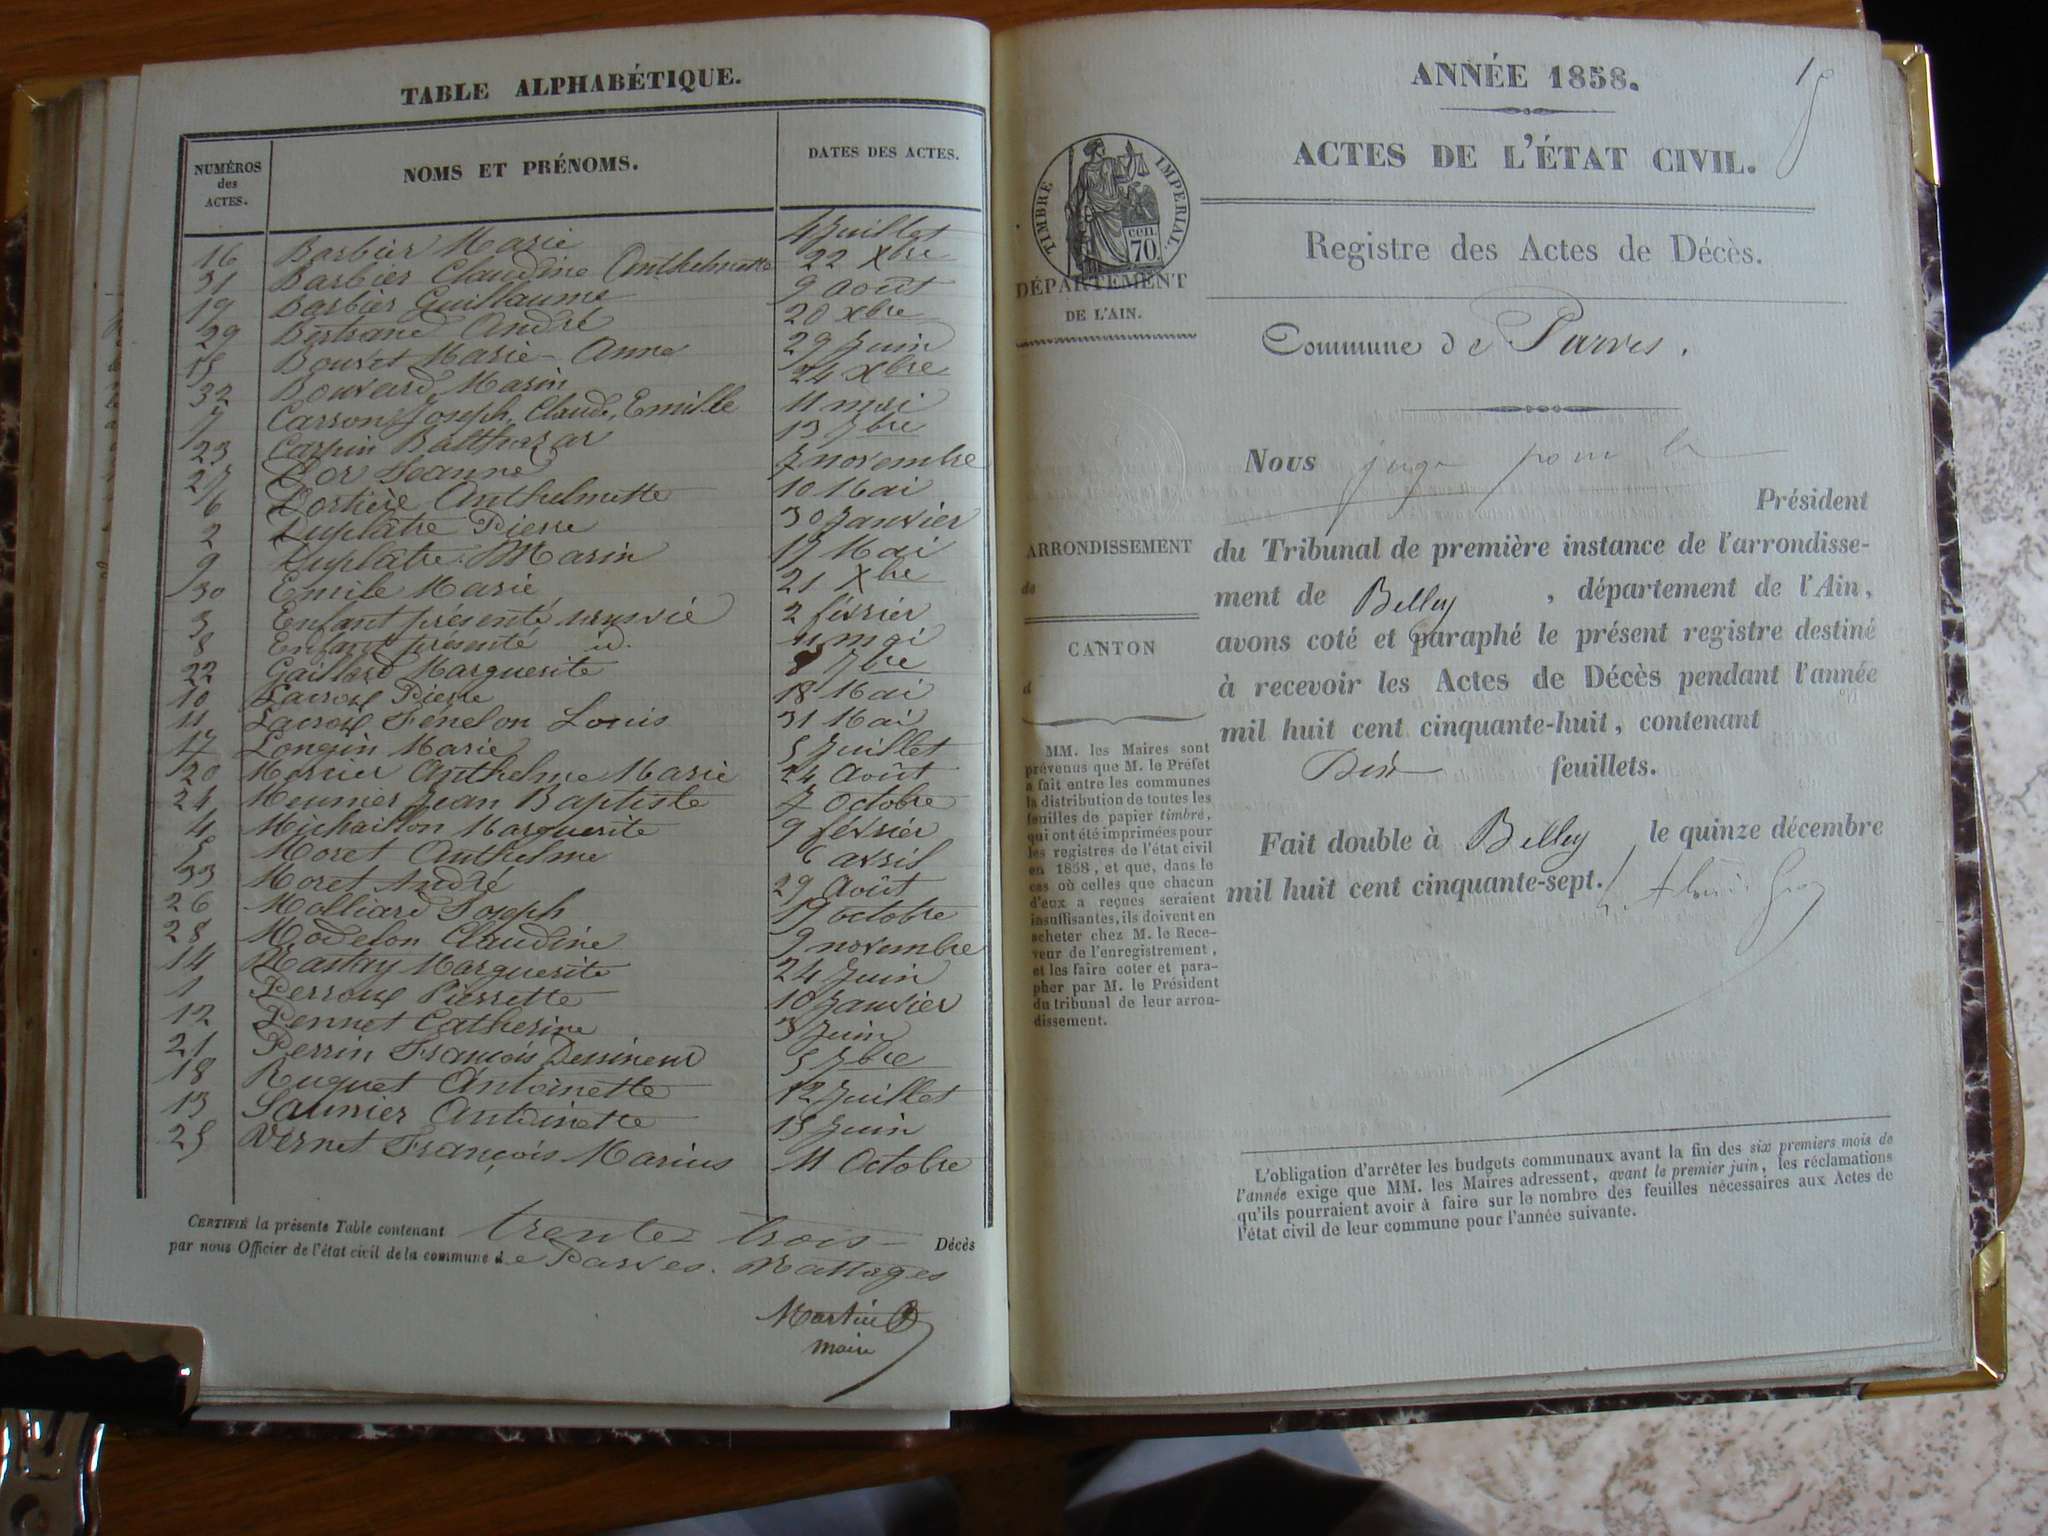 TABLE ALPHABÉTIQUE.
NUMÉROS des ACTES. NOMS ET PRÉNOMS. DATES DES ACTES.
16 Barbier Marie 4 Juillet
31 Barbier Claudine Anthelmette 22 Xbre
19 Barbier Guillaume 9 Août
29 Bertrand André 20 Xbre
15 Bouvet Marie-Anne 29 Juin
32 Bouvard Marin 24 Xbre
7 Joseph, Claude, Emille 11 mai
23 Carpin Balthazar 13 7bre
27 Cor Jeanne 7 novembre
6 Dortière Anthelmette 10 Mai
2 Duplâtre Pierre 30 Janvier
9 Duplâtre Marin 17 Mai
30 Emile Marie 21 Xbre
3 Enfant présenté sans vie 2 février
8 Enfant présenté id. 11 mai
22 Gaillard Marguerite 8 7bre
10 Lacroix Pierre 18 Mai
11 Lacroix Fénelon Louis 31 Mai
17 Longin Marie 5 Juillet
20 Mercier Anthelme Marie 24 Août
24 Meunier Jean Baptiste 7 Octobre
4 Michaillon Marguerite 9 février
5 Moret Anthelme 6 avril
33 Moret André 29 Août
26 Molliard Joseph 19 octobre
28 Modelon Claudine 9 novembre
14 Marguerite 24 Juin
1 Perroux Pierrette 10 Janvier
12 Pennet Catherine 3 Juin
21 Perrin François 5 7bre
18 Ruguet Antoinette 12 Juillet
13 Saunier Antoinette 15 Juin
25 Vernet François Marius 11 Octobre
CERTIFIÉ la présente Table contenant trente trois Décès
par nous Officier de l'état civil de la commune de Parves.
Martin
maire
ANNÉE 1858.
ACTES DE L'ÉTAT CIVIL.
TIMBRE IMPERIAL.
cen. 70.
Registre des Actes de Décès.
DÉPARTEMENT
DE L'AIN.
Commune de Parves.
Nous juge pour le
Président
du Tribunal de première instance de l'arrondisse-
ment de Belley, département de l'Ain,
avons coté et paraphé le présent registre destiné
à recevoir les Actes de Décès pendant l'année
mil huit cent cinquante-huit, contenant
Dix feuillets.
Fait double à Belley le quinze décembre
mil huit cent cinquante-sept.
ARRONDISSEMENT
de
CANTON
d
MM. les Maires sont
prévenus que M. le Préfet
a fait entre les communes
la distribution de toutes les
feuilles de papier timbré,
qui ont été imprimées pour
les registres de l'état civil
en 1858, et que, dans le
cas où celles que chacun
d'eux a reçues seraient
insuffisantes, ils doivent en
acheter chez M. le Rece-
veur de l'enregistrement,
et les faire coter et para-
pher par M. le Président
du tribunal de leur arron-
dissement.
L'obligation d'arrêter les budgets communaux avant la fin des six premiers mois de
l'année exige que MM. les Maires adressent, avant le premier juin, les réclamations
qu'ils pourraient avoir à faire sur le nombre des feuilles nécessaires aux Actes de
l'état civil de leur commune pour l'année suivante.